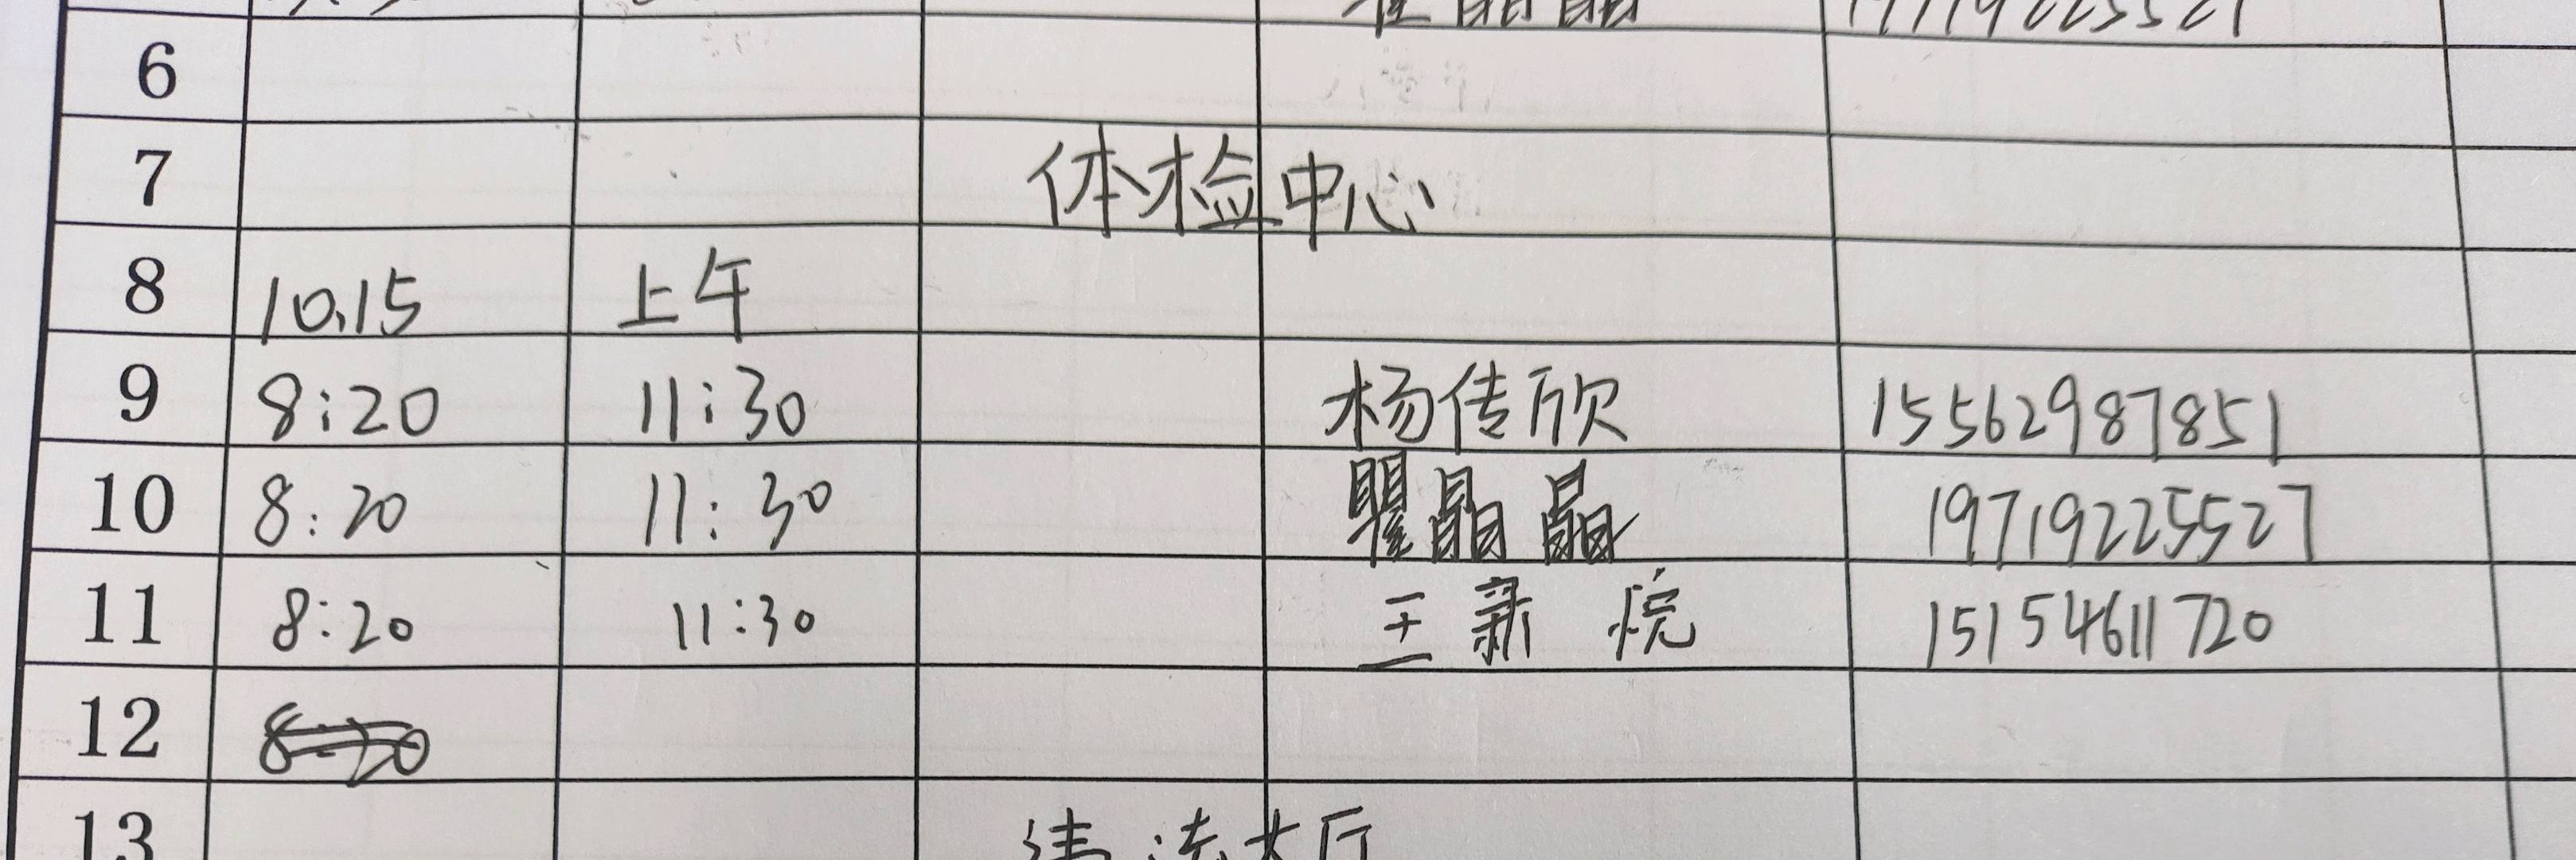 6
7 体检中心
8 10.15 上午
9 8:20 11:30 杨传欣 15562987851
10 8:20 11:30 瞿晶晶 19719225527
11 8:20 11:30 王新悦 15154611720
12
13 违法大厅